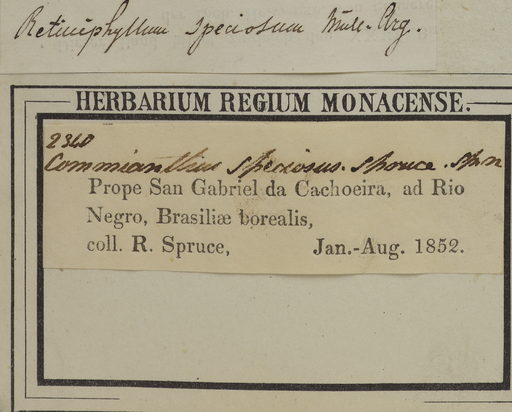 Retiniphyllum speciosum Müll-Arg.
HERBARIUM REGIUM MONACENSE.
2340
Commianthus speciosus. Spruce. Sp. n
Prope San Gabriel da Cachoeira, ad Rio
Negro, Brasiliæ borealis,
coll. R. Spruce, Jan.-Aug. 1852.